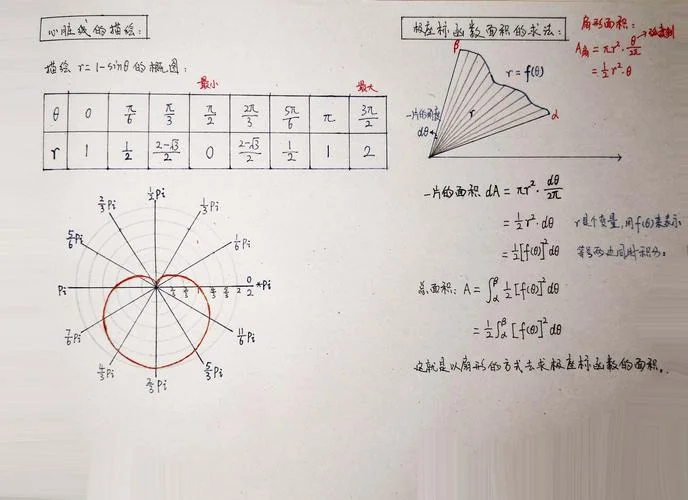 心脏线的描绘:
描绘 r=1-sinθ 的概图:
最小 最大
θ 0 π/6 π/3 π/2 2π/3 5π/6 π 3π/2
r 1 1/2 (2-√3)/2 0 (2-√3)/2 1/2 1 2
1/2 Pi
2/3 Pi 1/3 Pi
5/6 Pi 1/6 Pi
Pi 0/2 *Pi
7/6 Pi 11/6 Pi
4/3 Pi 5/3 Pi
Pi
极座标函数面积的求法:
β r=f(θ)
一片的角度 r α
dθ
扇形面积:
A扇=πr²·θ/2π → 弧度制
=1/2 r²·θ
一片的面积 dA=πr²·dθ/2π
=1/2 r²·dθ r是个变量,用f(θ)来表示
=1/2[f(θ)]²dθ 等号两边同时积分。
总面积: A=∫_α^β 1/2[f(θ)]²dθ
=1/2∫_α^β[f(θ)]²dθ
这就是以扇形的方式去求极座标函数的面积。